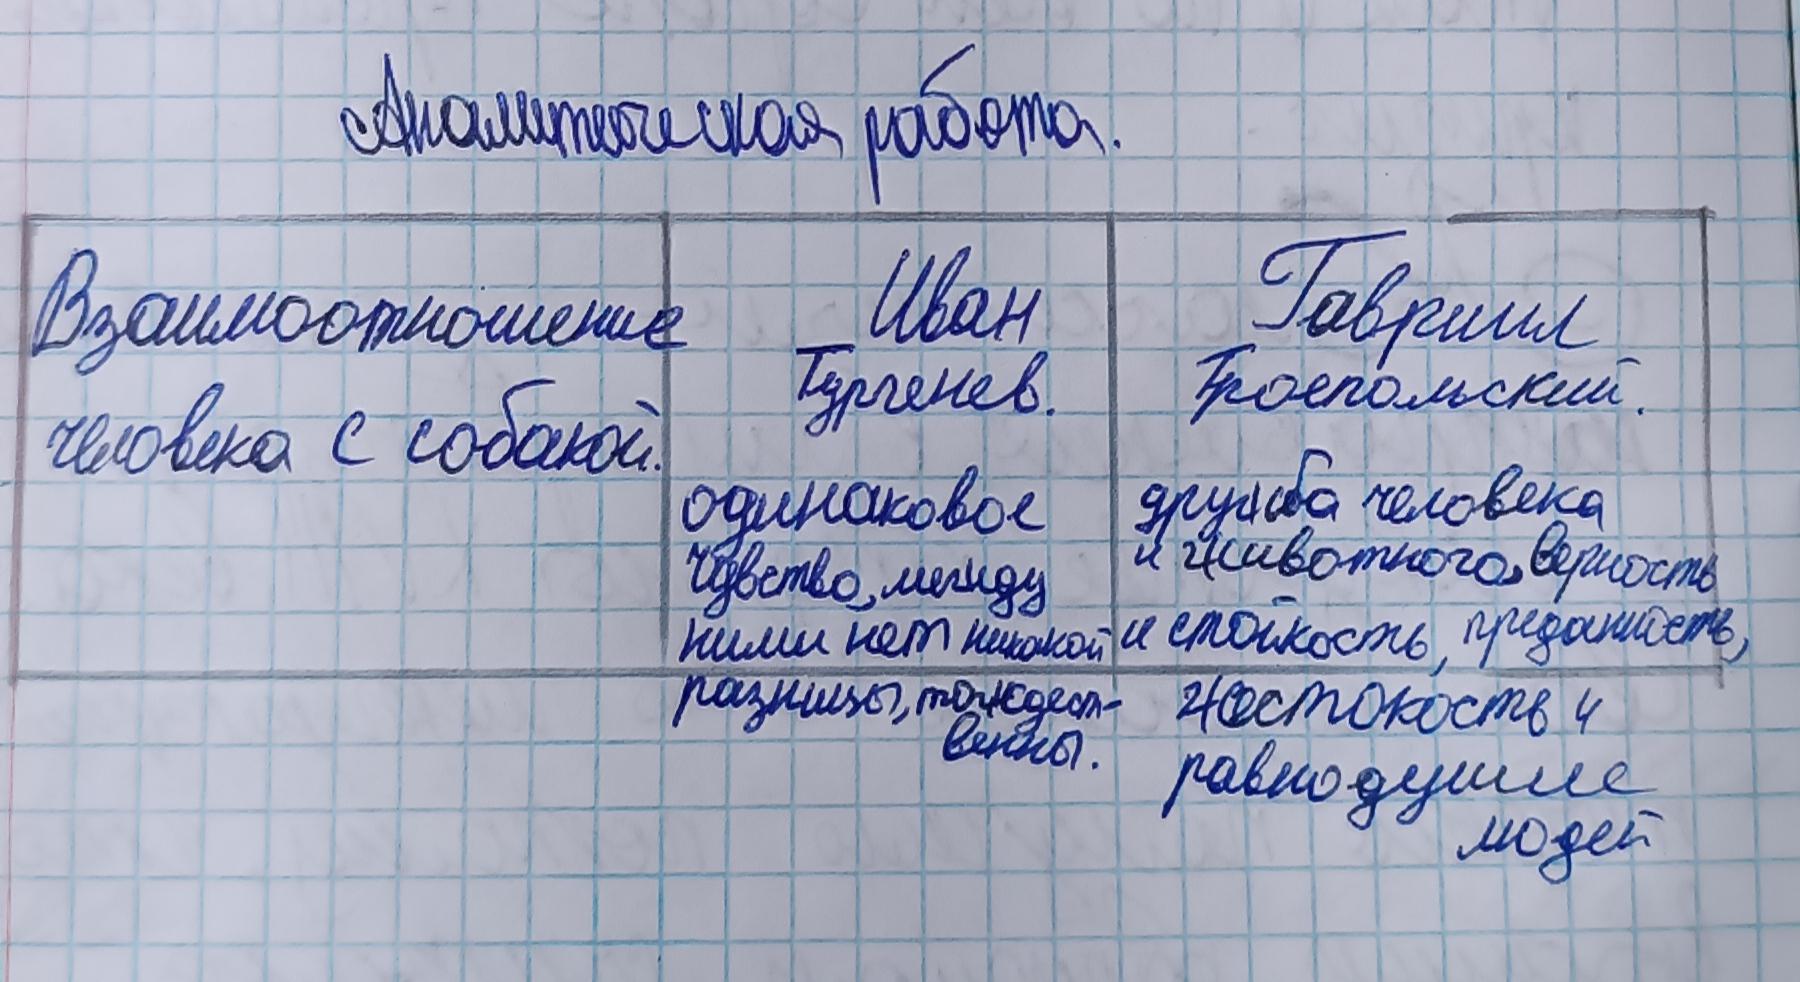 Аналитическая работа.
Взаимоотношение
человека с собакой.
Иван
Тургенев.
одинаковое
чувство, между
ними нет никакой
разницы, тождест-
венны.
Гавриил
Троепольский.
дружба человека
и животного, верность
и стойкость, преданность,
жестокость и
равнодушие
людей